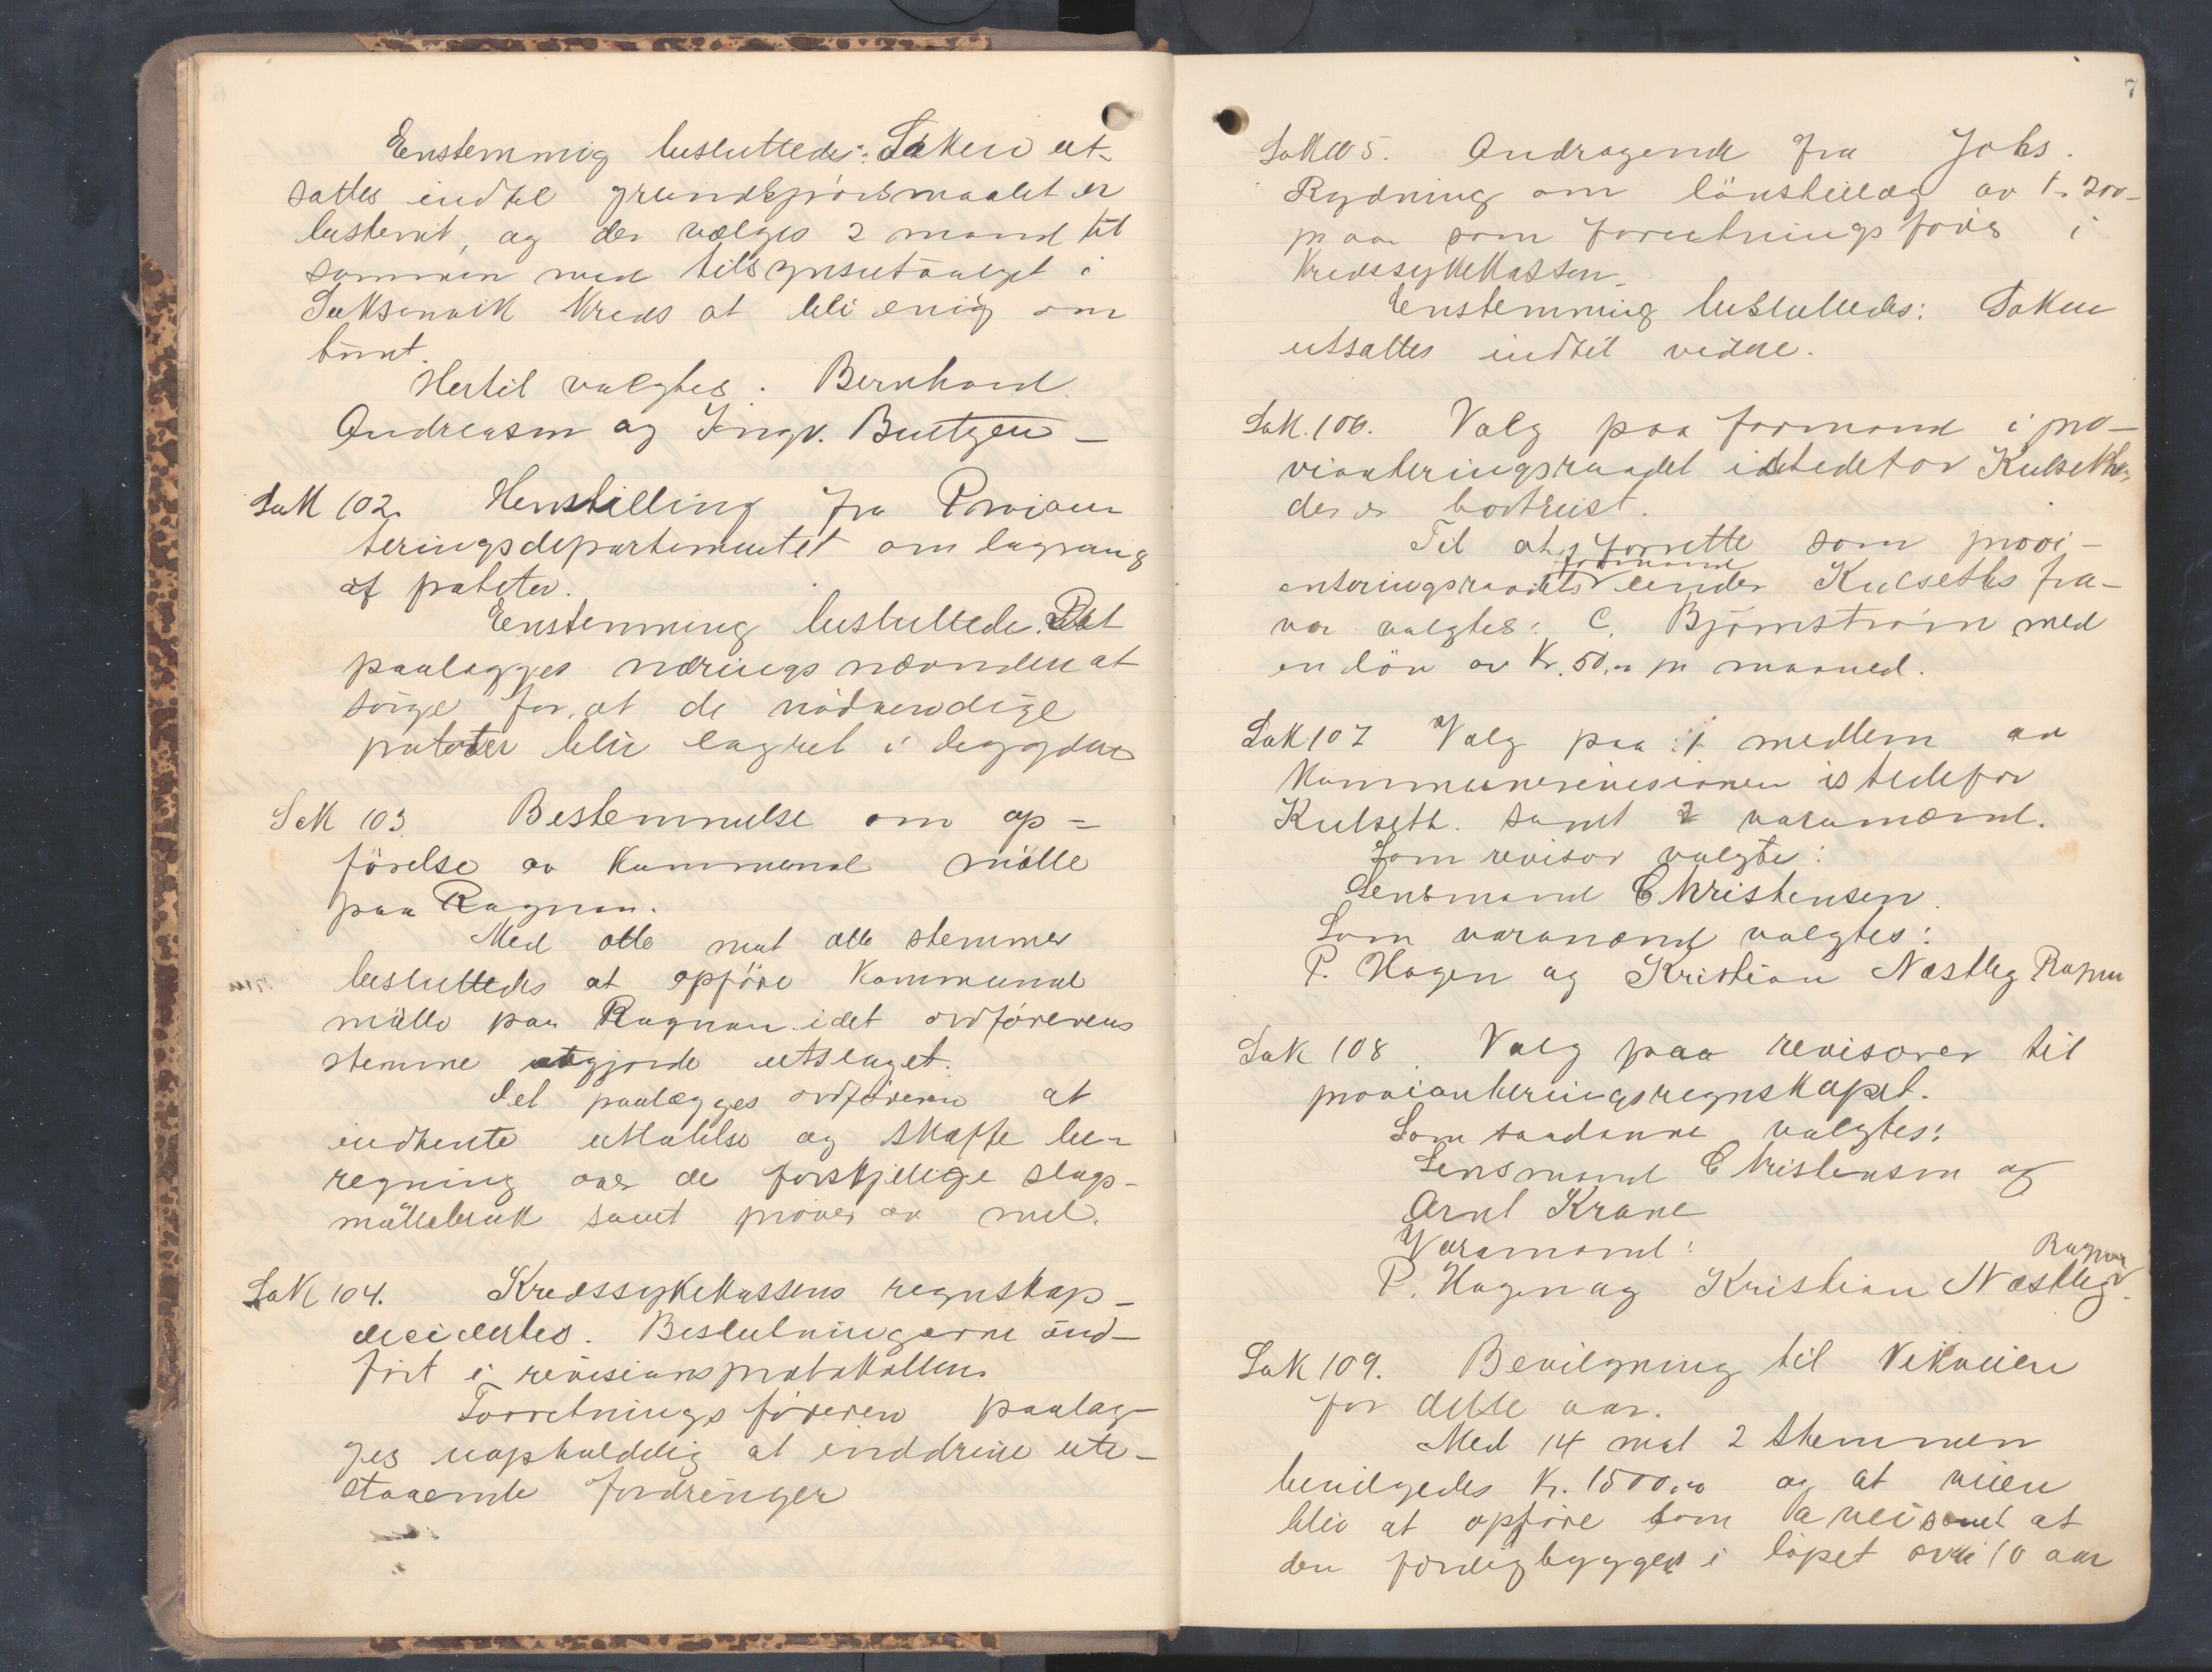 Enstemmig besluttedes: Saken ut-
sattes indtil grundspörsmaalet er
bestemt, og der vælges 2 mand til
sammen med tilsynsutvalget i
Saksenvik kreds at bli enig om
tomt.
Hertil valgtes: Bernhard
Andreasen og Ingv. Buntzen -
Sak 102. Henstilling fra Provian
teringsdepartementet om lagring
af poteter.
Enstemmig besluttede: Det
paalægges næringsnævnden at
sörge for, at de nödvendige
poteter blir lagret i bygden
Sak 103. Bestemmelse om op=
förelse av kommunal mölle
paa Rognan.
Med otte mot otte stemmer
besluttedes at opföre kommunal
mölle paa Rognan idet ordförerens
stemme utgjorde utslaget.
Det paalægges ordföreren at
indhente uttalelse og skaffe be-
regning over de forskjellige slags
möllebruk samt pröver av mel.
Sak 104. Kredssykekassens regnskap -
decidertes. Beslutningerne ind-
fört i revisionsprotokollen.
Forretningsföreren paalæg-
ges uopholdelig at inddrive ute-
staaende fordringer
Sak 105. Andragende fra Johs.
Rydning om lönstillæg av kr 200 -
pr aar som forretningsförer i
Kredssykekassen.
Enstemmig besluttedes: Saken
utsattes indtil videre.
Sak. 106. Valg paa formand i pro-
vianteringsraadet istedetfor Kulseth
der er bortreist.
Til at forrette som provi-
anteringsraadets formand under Kulseths fra-
vær valgtes: C. Bjørnstrøm med
en lön av Kr. 50,00 pr maaned.
Sak 107 Valg paa 1 medlem av
kommunerevisionen istedefor
Kulseth. samt 2 varamænd.
Som revisor valgte:
Lensmand Christensen.
Som varamænd valgtes:
P. Hagen og Kristian Næstby Rognan
Sak 108. Valg paa revisorer til
provianteringsregnskapet.
Som saadanne valgtes:
Lensmand Christensen og
Arnt Krane
Varamænd:
P. Hagen og Kristian Næstby Rognan.
Sak 109. Bevilgning til Vikveien
for dette aar.
Med 14 mot 2 stemmer
bevilgedes Kr. 1500,00 og at veien
blir at opföre som veі samt at
den færdigbygges i löpet av 10 aar